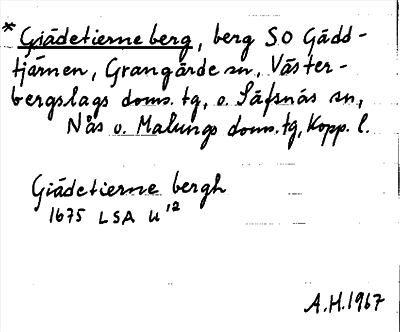 * Giädetierne berg, berg SO Gädd-
tjärnen, Grangärde sn, Väster-
bergslags doms. tg, o. Säfsnäs sn,
Nås o. Malungs doms. tg, Kopp. l.
Giädetierne bergh
1675 LSA U 12
A.H. 1967